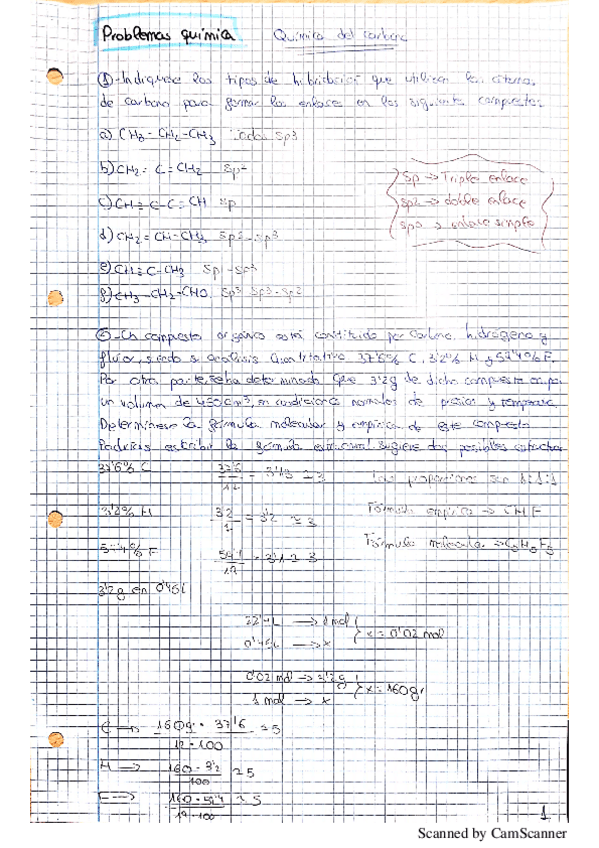 Problemas química Química del carbono
①-Indíquese los tipos de hibridación que utilizan los átomos
de carbono para formar los enlaces en los siguientes compuestos
a) CH3-CH2-CH3 todos sp3
b) CH2=C=CH2 Sp2
c) CH≡C-C≡CH sp
d) CH2=CH-CH3 sp2-sp3
e) CH≡C-CH3 Sp-sp3
f) CH3-CH2-CHO Sp3 Sp3-sp2
Sp → Triple enlace
sp2 → doble enlace
sp3 → enlace simple
②-Un compuesto orgánico está constituido por carbono, hidrógeno y
flúor, siendo su análisis cuantitativo 37'6% C, 3'2% H y 59'4% F.
Por otra parte, se ha determinado que 3'2g de dicho compuesto ocupa
un volumen de 450cm³, en condiciones normales de presión y temperatura.
Determínese la fórmula molecular y empírica de este compuesto
Podrías escribir la fórmula sugiere dos posibles
37'6% C 37'6/12 = 3'13 ≃ 3 Las proporciones son 1:1:1
3'2% H 3'2/1 = 3'2 ≃ 3 Fórmula empírica → CHF
% F /19 = 3'1 ≃ 3 Fórmula molecular →
3'2g en 0'45l
22'4L → 1 mol
0'45L → x x = 0'02 mol
0'02 mol → 3'2g
1 mol → x x = 160g
C → 160g · 37'6 / 12·100 ≃ 5
H → 160 · 3'2 / 100 ≃ 5
F → 160 · / 19·100 ≃ 5
1
Scanned by CamScanner